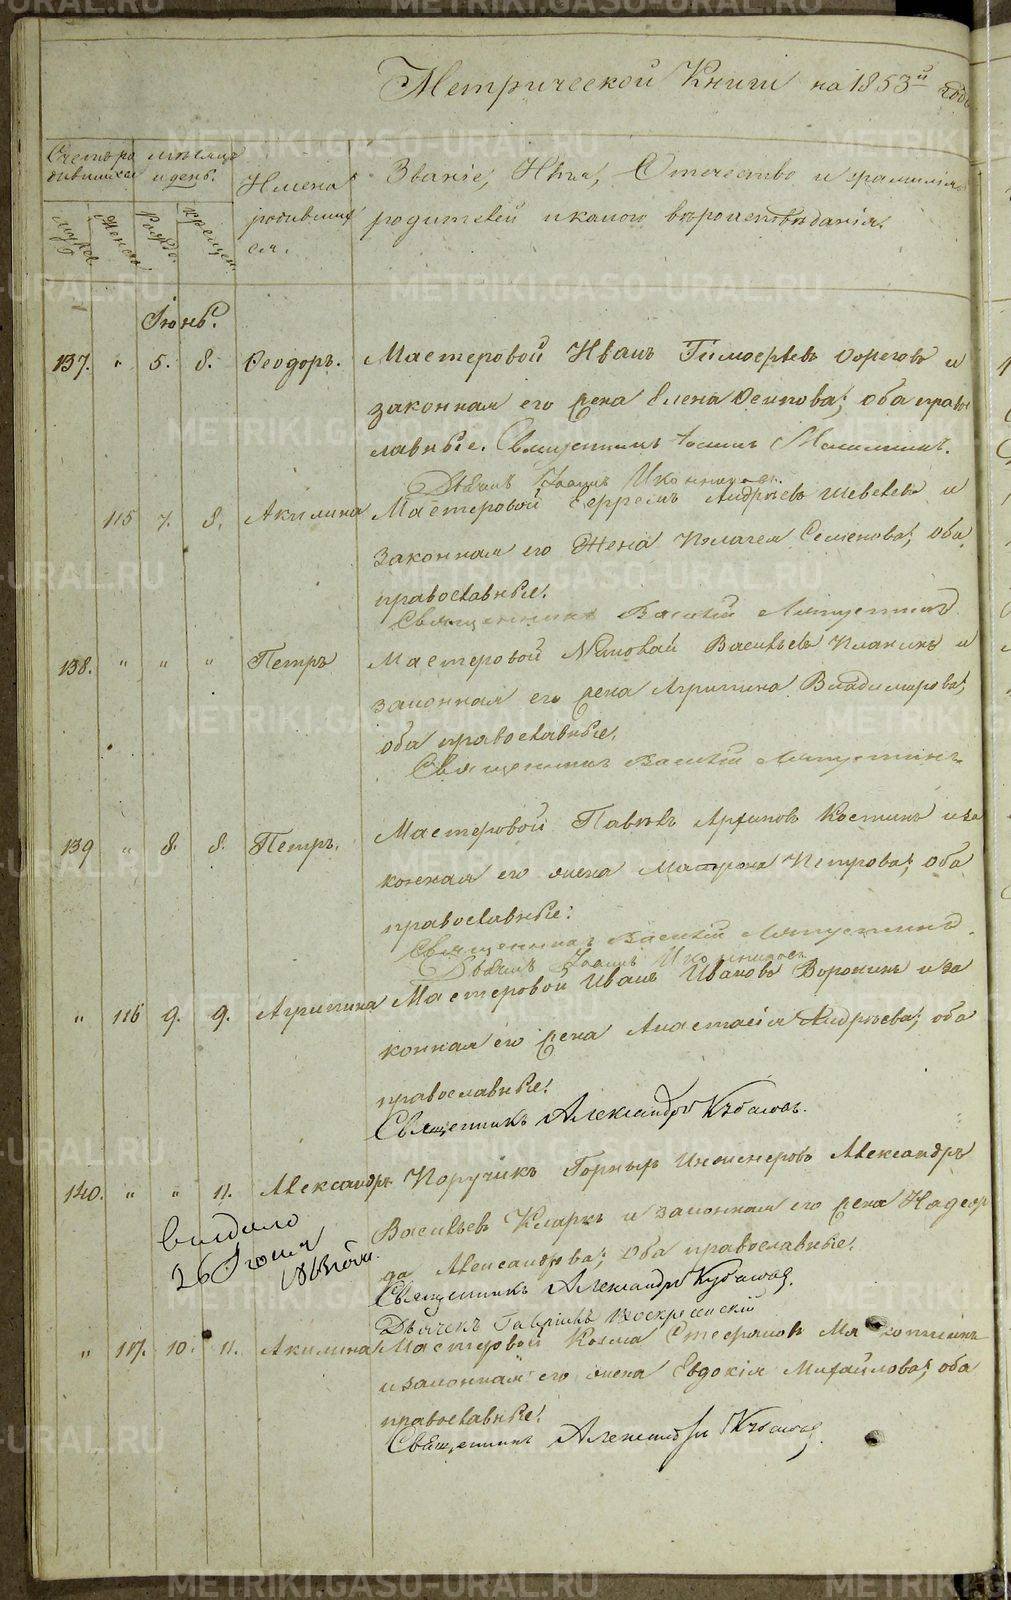 Метрической Книги на 1853й годъ
Счетъ родившихся
мѣсяцъ и день.
Имена родившихся.
Званіе, Имя, Отечество и фамилія
родителей и какого вѣроисповѣданія.
Мужес. Женска. Рожде. крещен.
Іюнь.
137. " 5. 8. Ѳеодоръ. Мастеровой Иванъ Тимофѣевъ и
законная его жена Елена Осипова; оба право
славные. Священникъ Іоаннъ
Дьячекъ Іоаннъ Иконниковъ.
115 7. 8. Акилина Мастеровой Ефремъ Андрѣевъ Шевелевъ и
законная его жена Пелагея Семенова; оба
православные.
Священникъ Василій Ляпустинъ
138. " " " Петръ Мастеровой Николай Васильевъ и
законная его жена Агрипина Владимірова;
оба православные.
Священникъ Василій Ляпустинъ
139 " 8. 8. Петръ. Мастеровой Павелъ Архиповъ Костинъ и за
конная его жена Матрона Петрова; оба
православные.
Священникъ Василій Ляпустинъ.
Дьячекъ Іоаннъ Иконниковъ
" 116 9. 9. Агрипина Мастеровой Иванъ Ивановъ Воронинъ и за
конная его жена Анастасія Андрѣева; оба
православные.
Священникъ Александръ Кубасовъ.
140. " " 11. Александръ Поручикъ Горныхъ Инженеровъ Александръ
Васильевъ Кларкъ и законная его жена Надеж
да Александрова; Оба православные.
Священникъ Александръ Кубасовъ.
Дьячекъ Гавріилъ Воскресенскій
выдано
26 Іюня
" 117. 10. 11. Акилина Мастеровой Козма Стефановъ и законная его жена Евдокія Михайлова; оба
православные.
Священникъ Александръ Кубасовъ.
METRIKI.GASO-URAL.RU